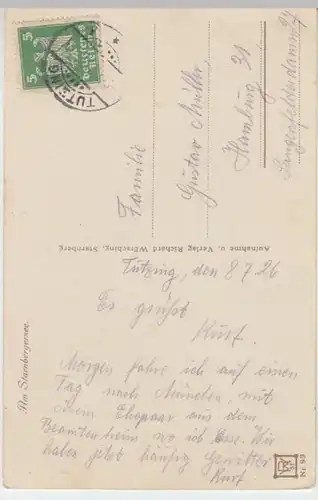 5 5
Deutsches
Reich
TUTZING
Familie
Gustav Müller,
Hamburg 31
Langenfelderdamm 94
Aufnahme u. Verlag Richard Wörsching, Starnberg
Am Starnbergersee.
Tutzing, den 8 7. 26
Es grüßt
Kurt.
Morgen fahre ich auf einen
Tag nach München, mit
einem Ehepaar aus dem
Beamtenheim wo ich Esse. Wir
haben jetzt häufig Gewitter
Kurt